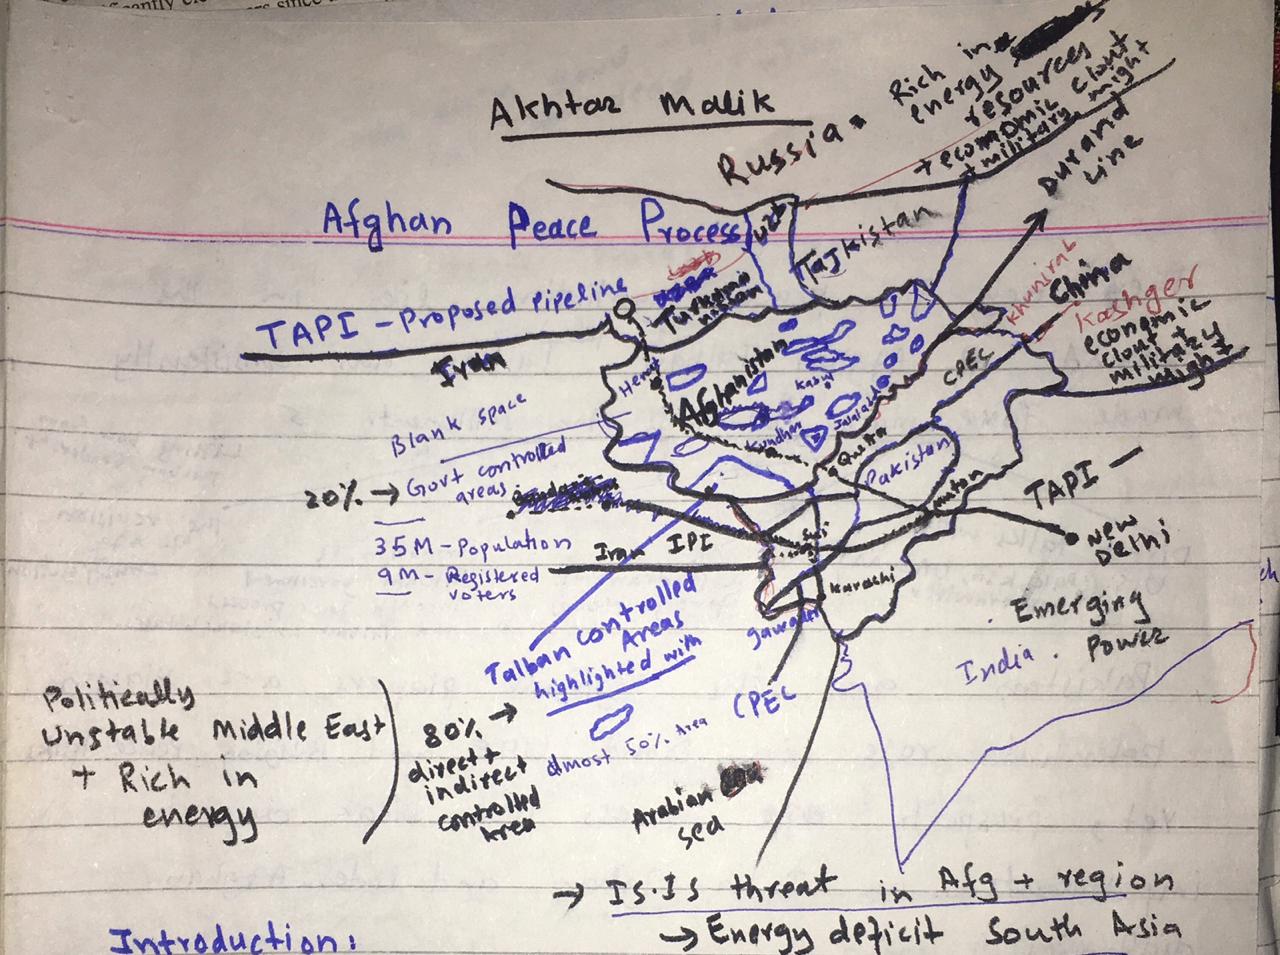 Akhtar Malik
Russia = Rich in
energy
resources
+ economic clout
+ military might
Durand
Line
Afghan Peace Process
Uzb
Tajkistan
TAPI - Proposed pipeline
Turkmen
nistan
Iran
Khunjrab
China
Kashger
economic
clout
military
might
CPEC
Herat
Afghanistan
Kabul
Jalalabad
Kundhar
Quita
Pakistan
Multan
Blank space
20% → Govt controlled
areas
35M - Population
9M - Registered
voters
TAPI -
New
Delhi
Iran IPI
Sui
Karachi
gawader
CPEC
Emerging
Power
India
Talban controlled
Areas
highlighted with
almost 50% Area
80% →
direct +
indirect
controlled
Area
Politically
Unstable Middle East
+ Rich in
energy
Arabian
sea
→ IS.IS threat in Afg + region
→ Energy deficit South Asia
Introduction: